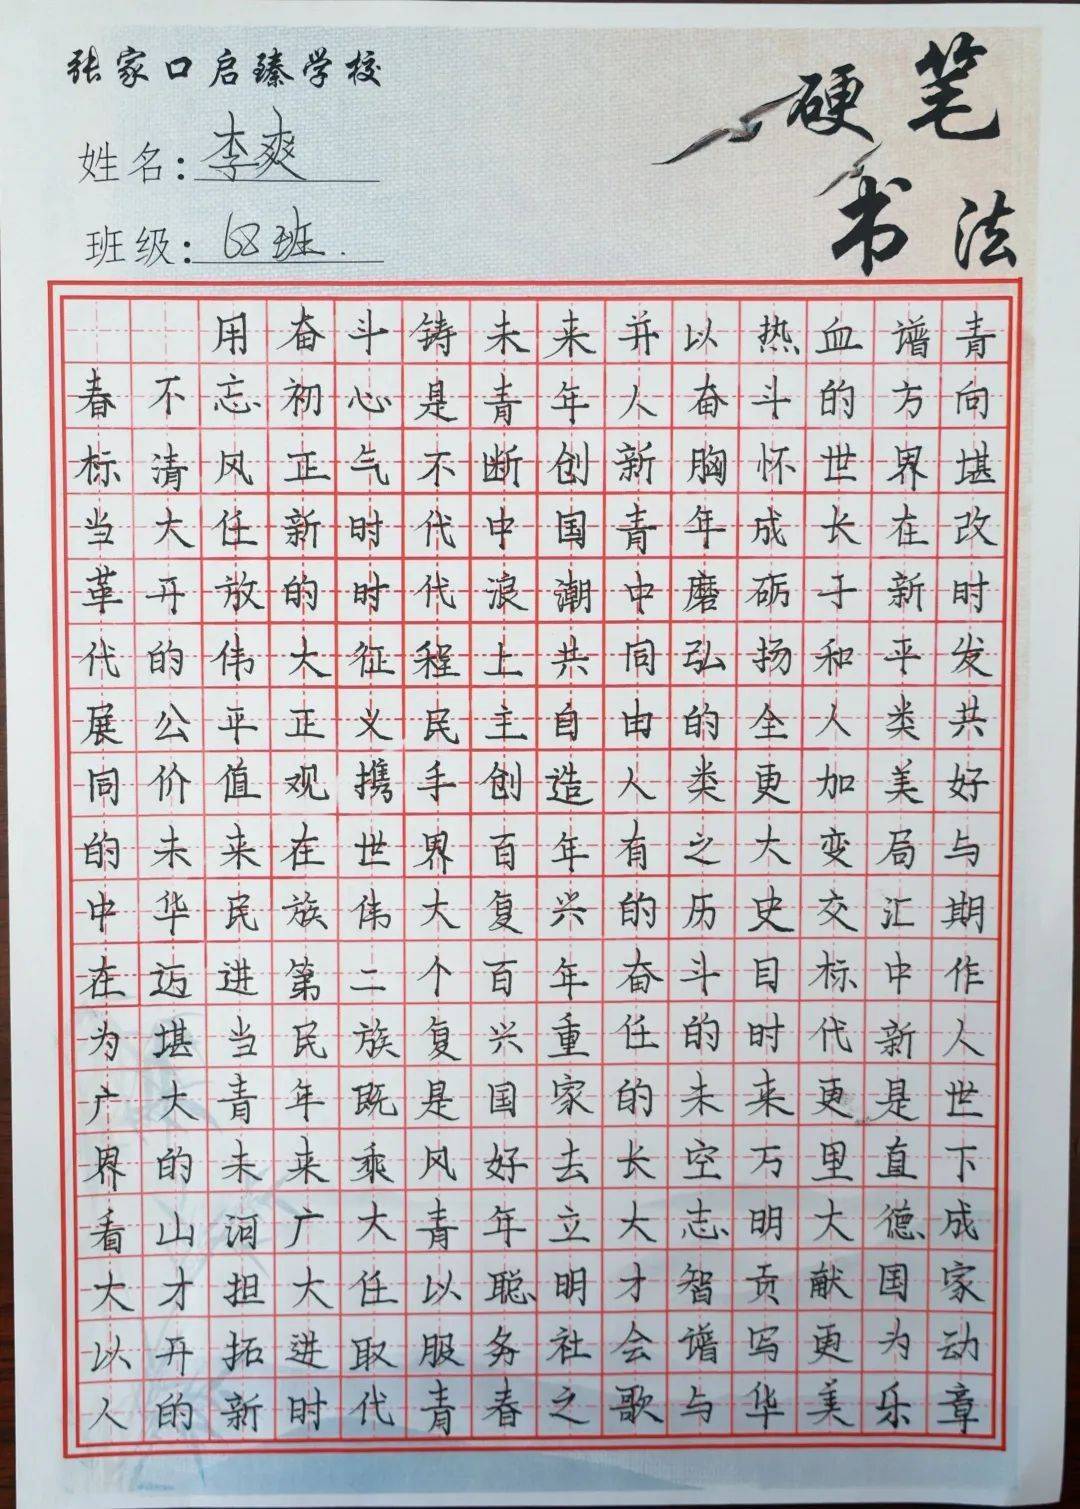 张家口启臻学校
硬笔
书法
姓名：李爽
班级：68班.
用奋斗铸未来并以热血谱青
春不忘初心是青年人奋斗的方向
标清风正气不断创新胸怀世界堪
当大任新时代中国青年成长在改
革开放的时代浪潮中磨砺于新时
代的伟大征程上共同弘扬和平发
展公平正义民主自由的全人类共
同价值观携手创造人类更加美好
的未来在世界百年有之大变局与
中华民族伟大复兴的历史交汇期
在迈进第二个百年奋斗目标中作
为堪当民族复兴重任的时代新人
广大青年既是国家的未来更是世
界的未来乘风好去长空万里直下
看山河广大青年立大志明大德成
大才担大任以聪明才智贡献国家
以开拓进取服务社会谱写更为动
人的新时代青春之歌与华美乐章